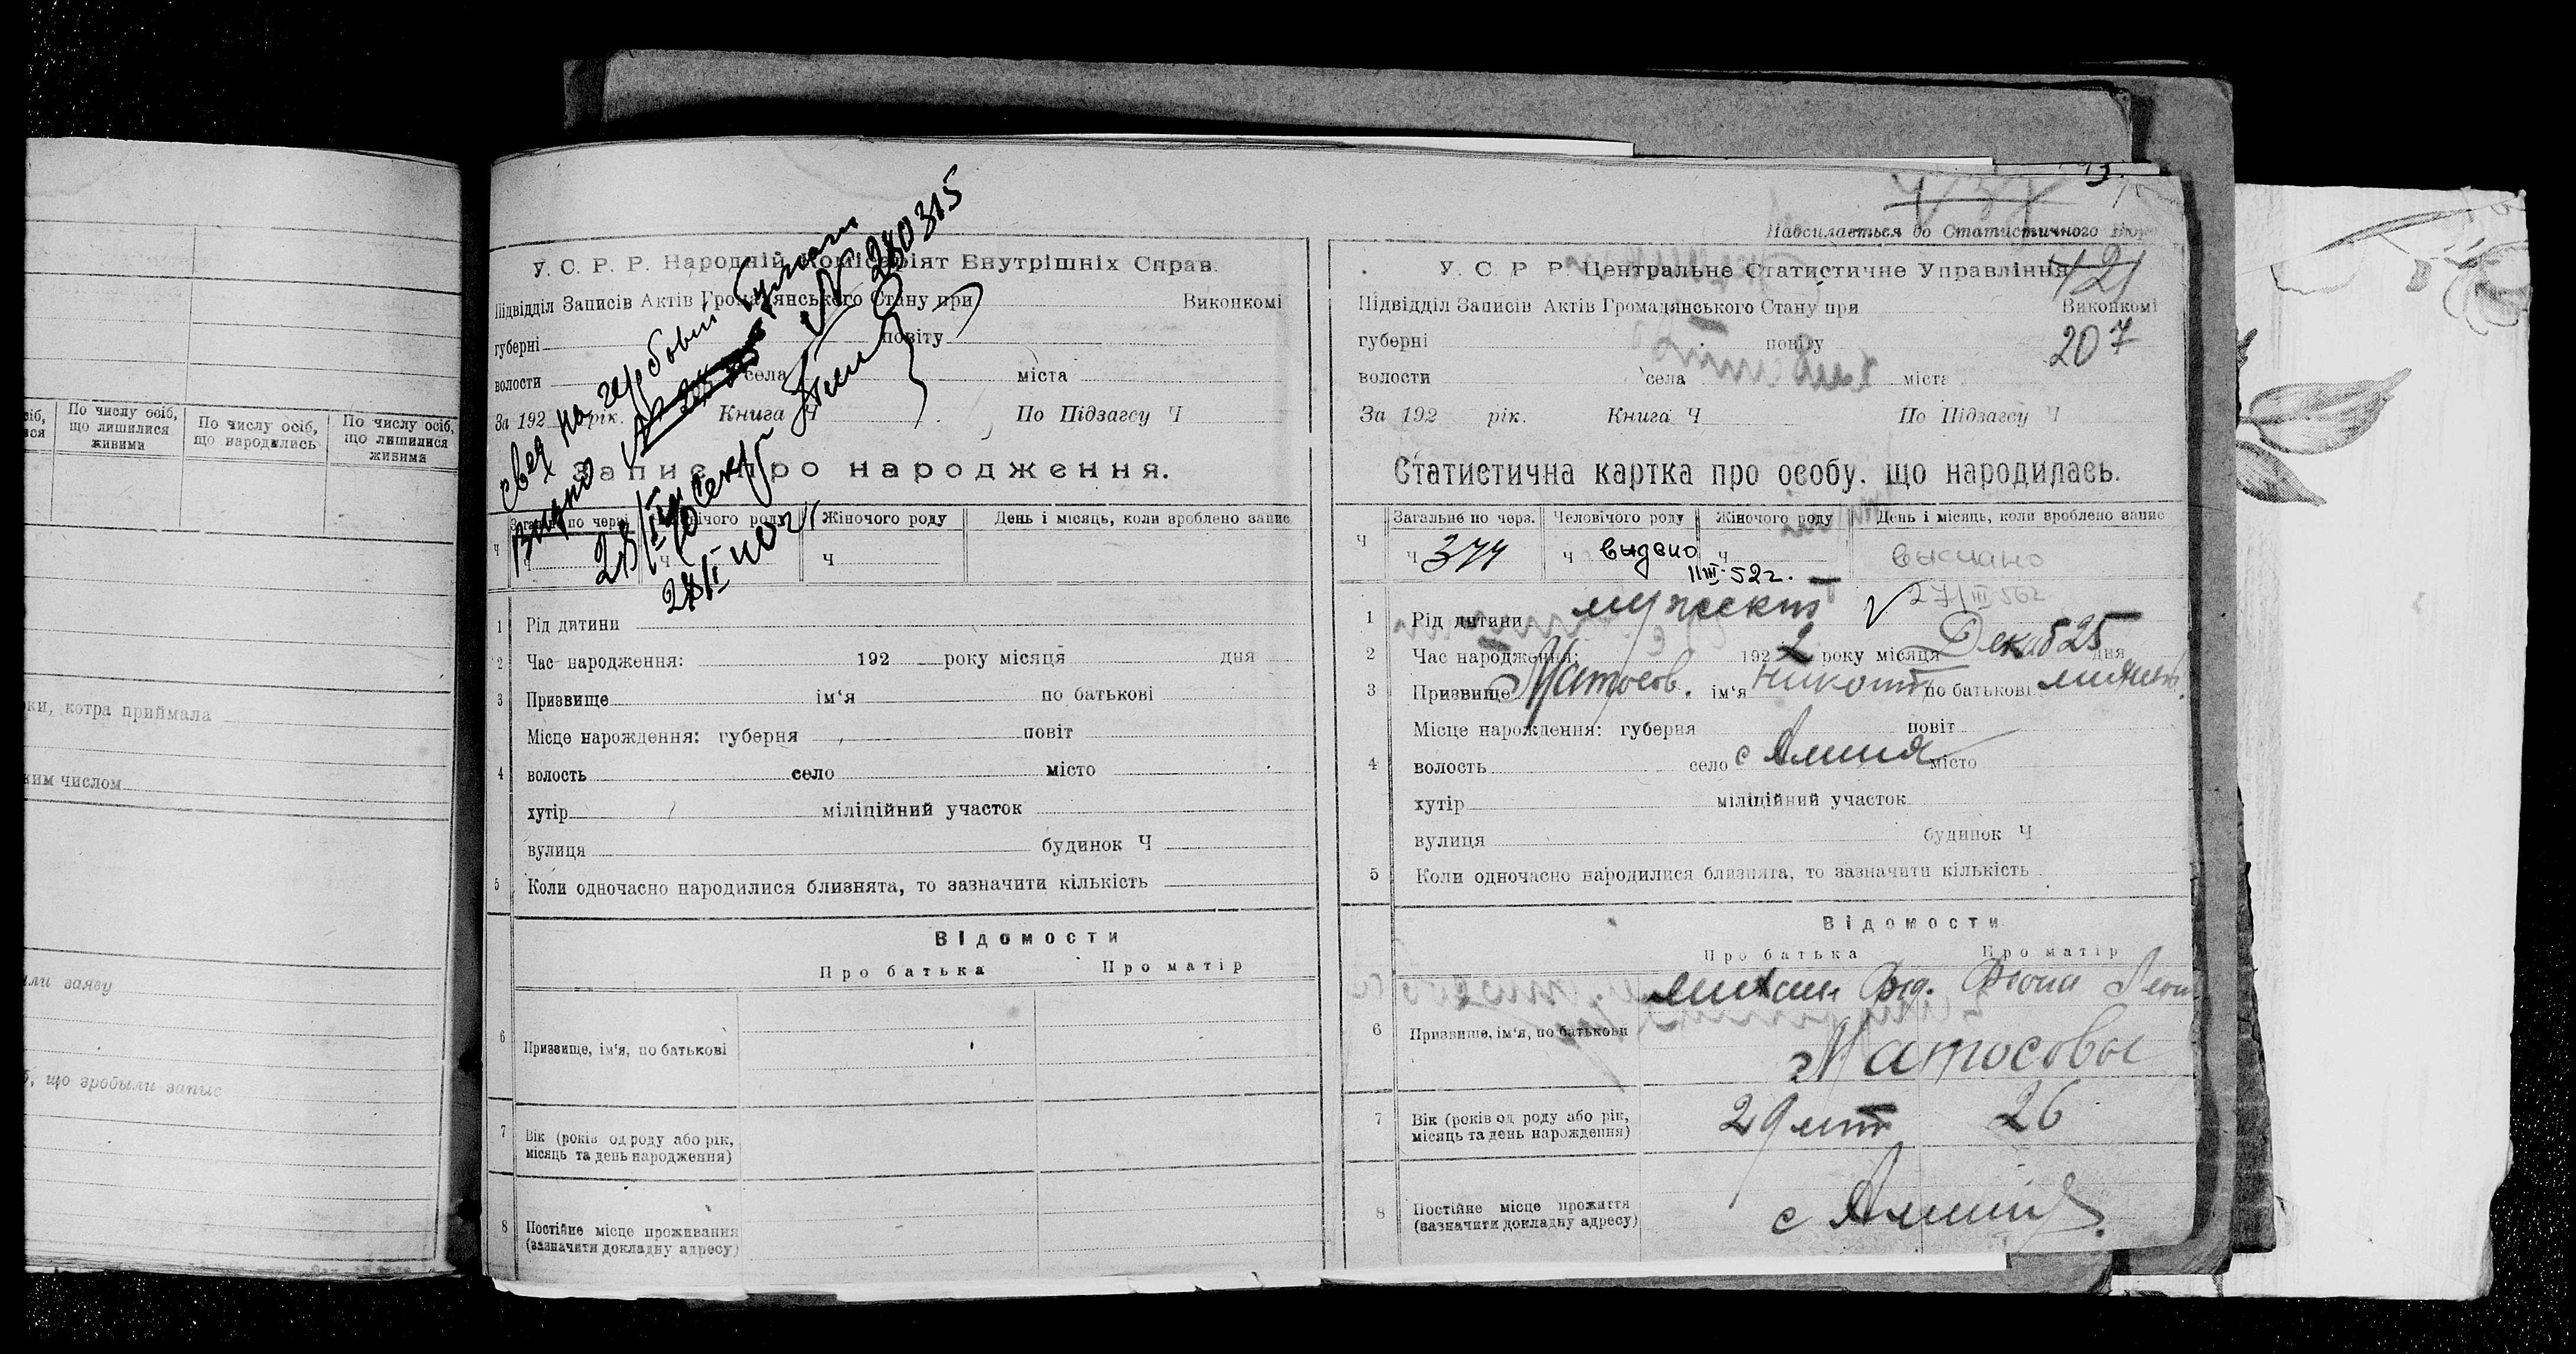 По числу осіб, що лишилися живими
По числу осіб, що народились
По числу осіб, що лишилися живими
котра приймала
числом
заяву
що зробыли запыс
У. С. Р. Р. Народній Комісаріят Внутрішніх Справ.
Підвідділ Записів Актів Громадянського Стану при Виконкомі
губерні повіту
волости села міста
За 192 рік. Книга Ч По Підзагсу Ч
на гербовій
№ 280315
Запис про народження.
Загальне по черзі Чоловічого роду Жіночого роду День і місяць, коли зроблено запис
Ч Ч Ч
1 Рід дитини
2 Час народження: 192 року місяця дня
3 Призвище ім‘я по батькові
Місце нарождення: губерня повіт
4 волость село місто
хутір міліційний участок
вулиця будинок Ч
5 Коли одночасно народилися близнята, то зазначити кількість
Відомости
Про батька Про матір
6 Призвище, ім‘я, по батькові
7 Вік (років од роду або рік, місяць та день народження)
8 Постійне місце проживання (зазначити докладну адресу)
Надсилається до Статистичного Бюро
У. С. Р. Р. Центральне Статистичне Управління
421
Підвідділ Записів Актів Громадянського Стану при Виконкомі
207
губерні повіту
волости села міста
За 192 рік. Книга Ч По Підзагсу Ч
Статистична картка про особу, що народилась.
Загальне по черз. Чоловічого роду Жіночого роду День і місяць, коли зроблено запис
Ч 374 Ч выдано Ч выслано
11 III-52г. 27/III 56г
1 Рід дитини мужеский
2 Час народження: 1922 року місяця Декаб 25 дня
3 Призвище Матосов. ім‘я Николай по батькові
Місце нарождення: губерня повіт
4 волость село місто
хутір міліційний участок
вулиця будинок Ч
5 Коли одночасно народилися близнята, то зазначити кількість
Відомости
Про батька Про матір
Михаил
6 Призвище, ім‘я, по батькови Матосовы
7 Вік (років од роду або рік, місяць та день нарождення) 29 лет 26
8 Постійне місце прожиття (зазначити докладну адресу) с